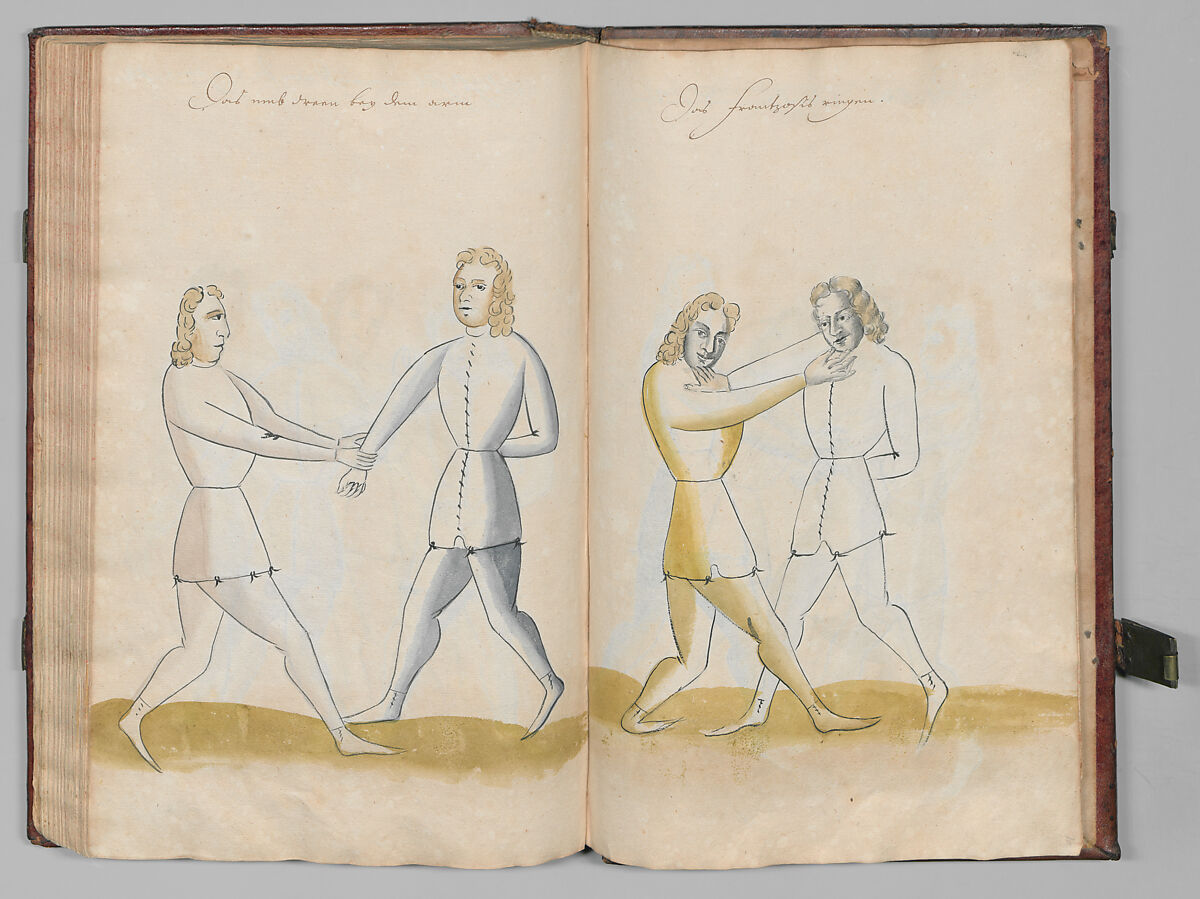 Das umb dreen bey dem arm
Das frantzosis ringen.